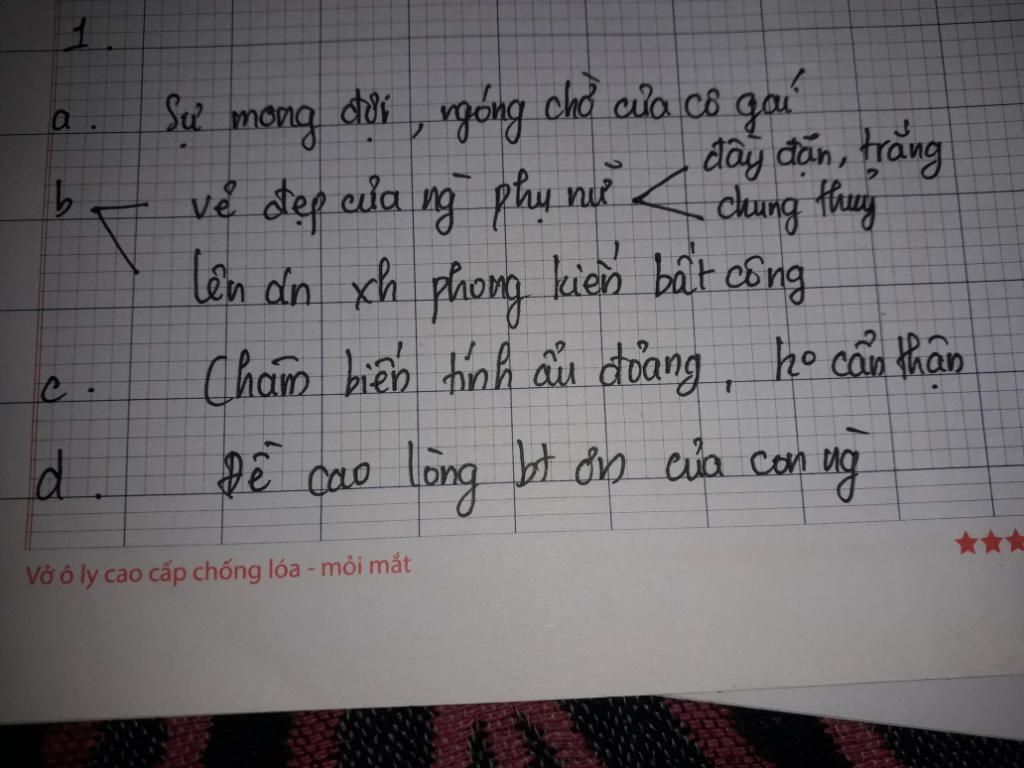 1.
a. Sự mong đợi, ngóng chờ của cô gái
đầy đặn, trắng
b vẻ đẹp của ng` phụ nữ
chung thuỷ
lên án xh phong kiến bất công
c. Châm biếm tính ẩu đoảng, ko cẩn thận
d. Đề cao lòng bt ơn của con ng`
Vở ô ly cao cấp chống lóa - mỏi mắt